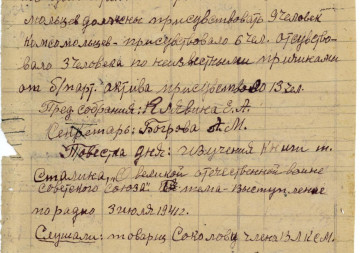 мольцев должны присувствовать 9 человек
комсомольцев - присувствовало 6 чел. отсуство-
вало 3 человека по неизвестными причинами
от б/парт. актива присувствовало 13 чел.
Пред собрания: Клявина Е.А.
Секретарь: Богрова А.М.
Повестка дня: изучения книги т.
Сталина "О великой отечественной войне
советского союза" тема - выступление
по радио 3 июля 1941 г.
Слушали: товарищ Соколову члена ВЛКСМ.